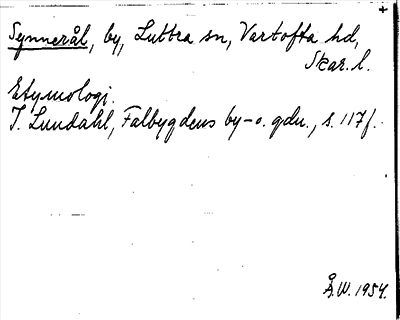 Synnerål, by, Luttra sn, Vartofta hd,
Skar. l.
Etymologi.
I. Lundahl, Falbygdens by- o. gdn., s. 117f.
Å.W. 1954.